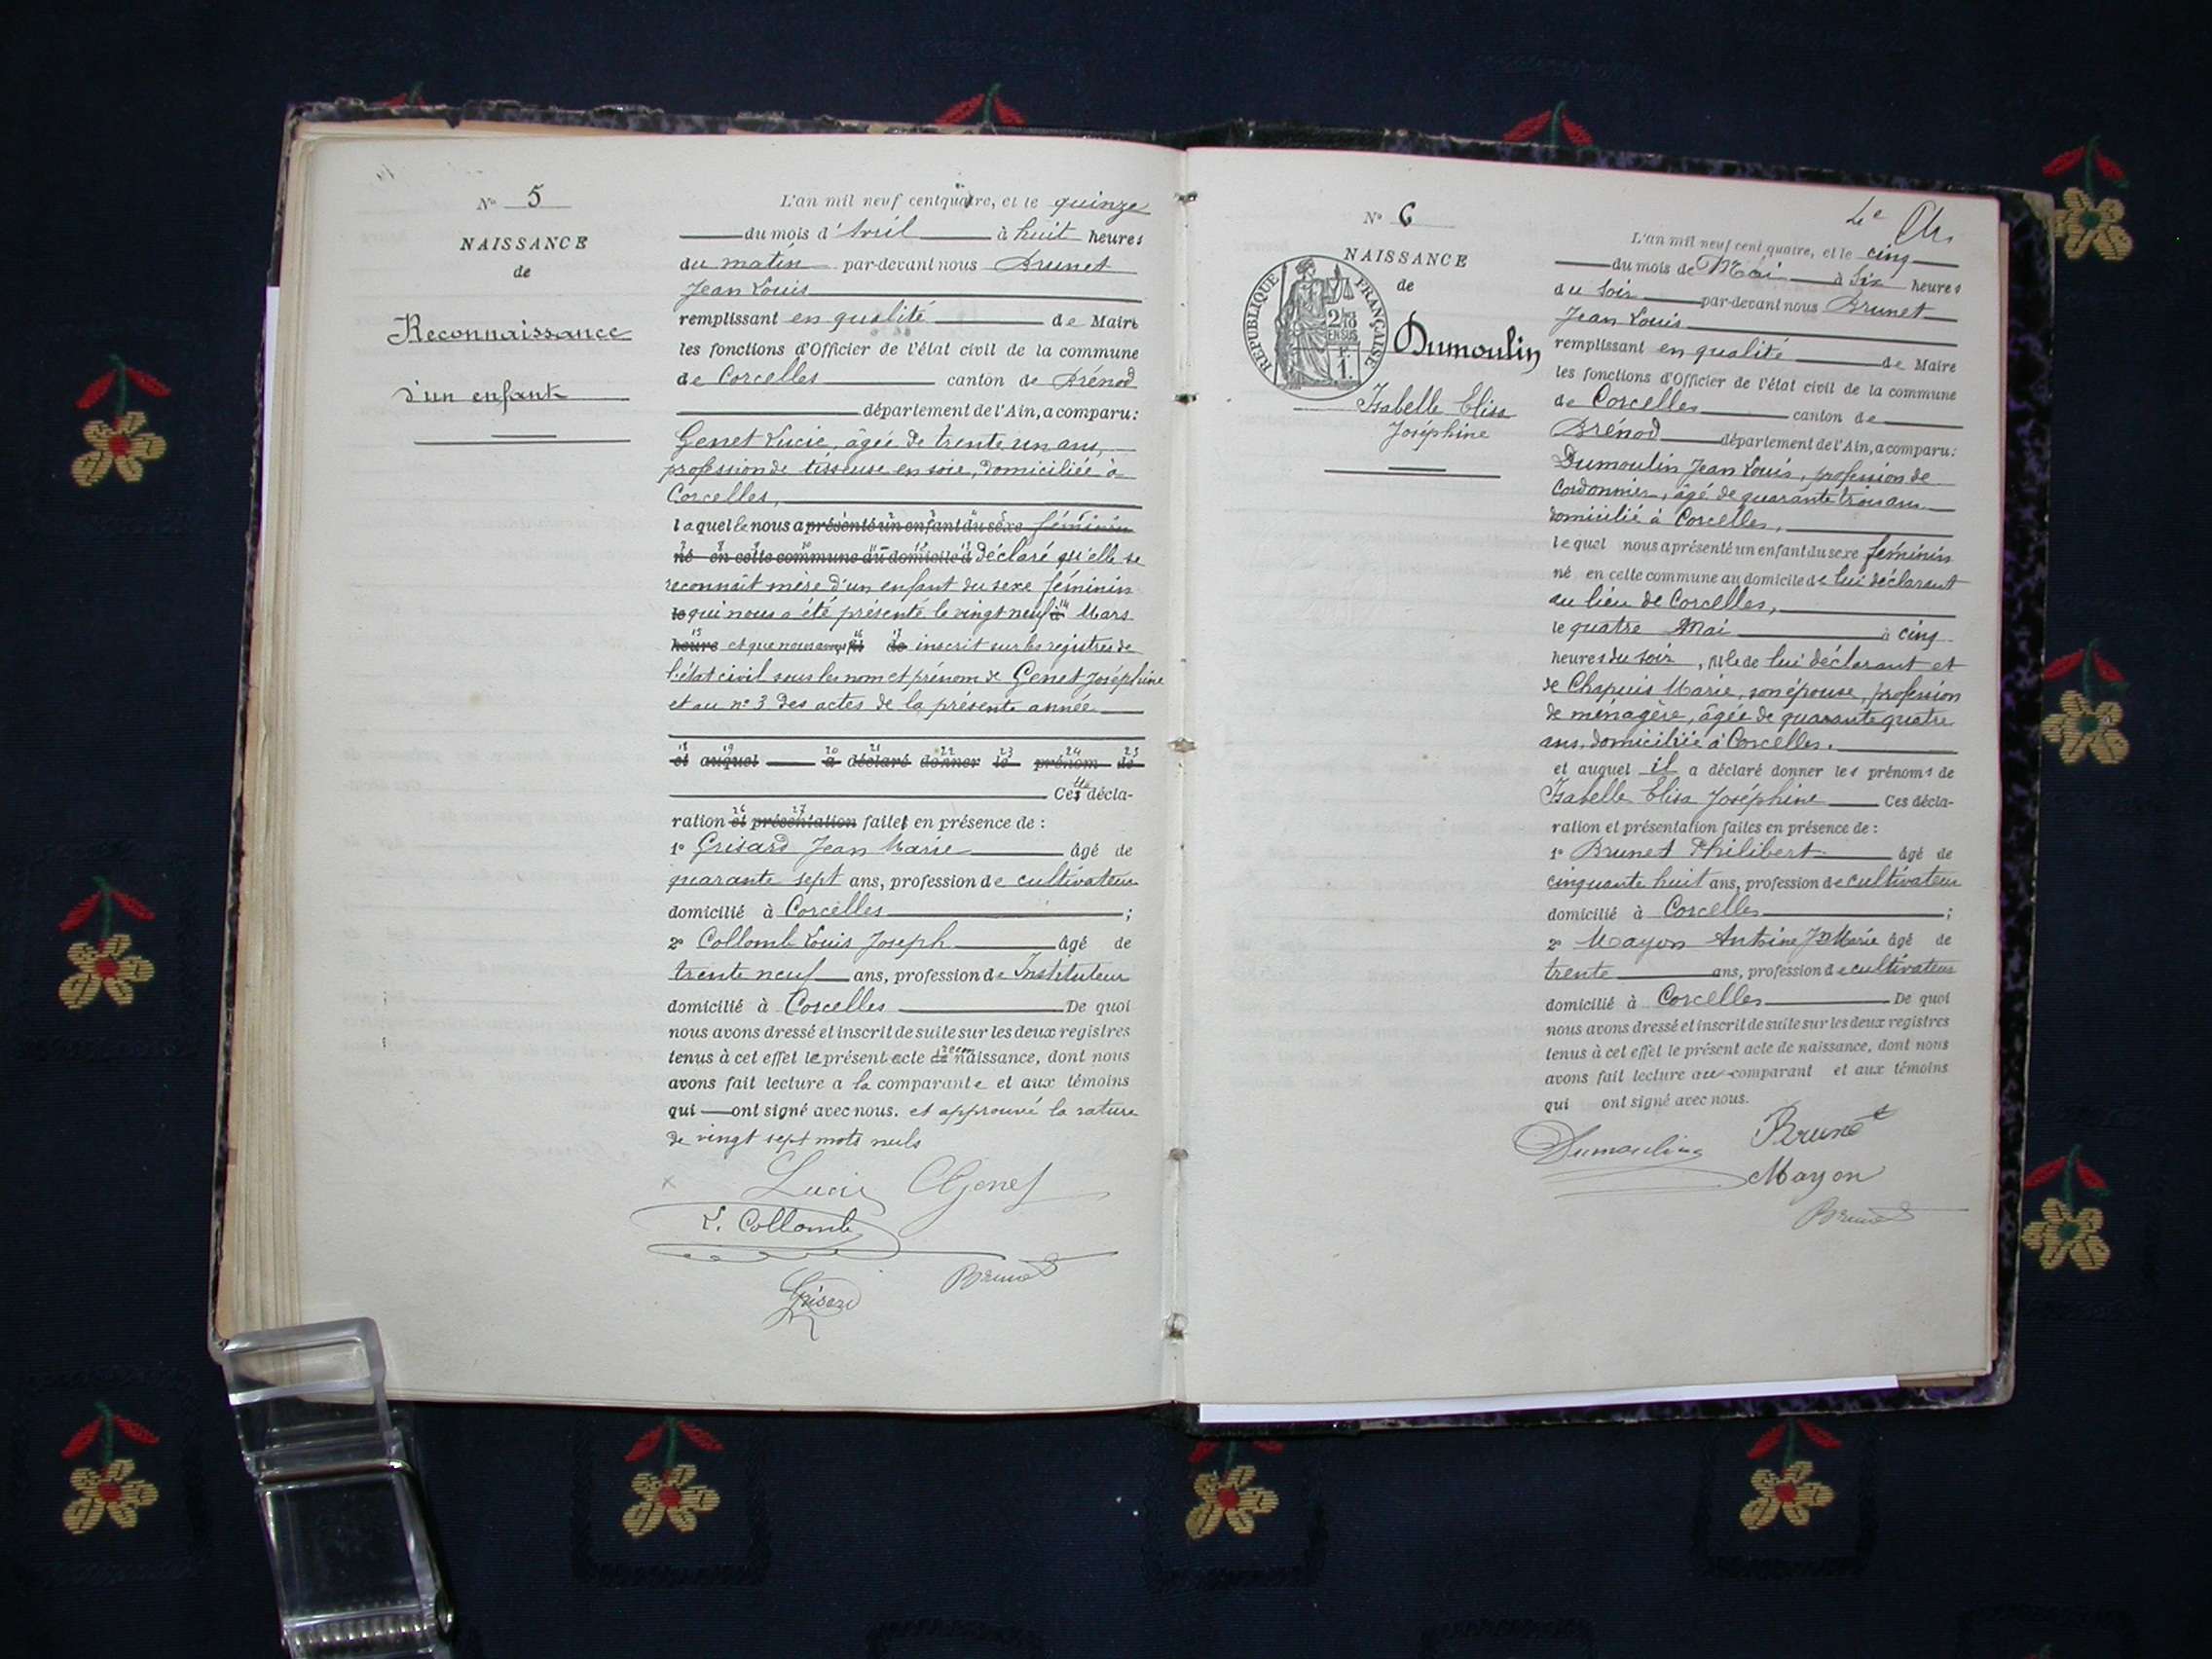 N° 5
NAISSANCE
de
Reconnaissance
d'un enfant
L'an mil neuf cent quatre, et le quinze
du mois d'Avril à huit heures
du matin par-devant nous Brunet
Jean Louis
remplissant en qualité de Maire
les fonctions d'Officier de l'état civil de la commune
de Corcelles canton de Brénod
département de l'Ain, a comparu :
Genet Lucie, âgée de trente un ans,
profession de tisseuse en soie, domiciliée à
Corcelles,
laquelle nous a présenté un enfant du sexe féminin
né en cette commune au domicile d déclaré qu'elle se
reconnaît mère d'un enfant du sexe féminin
le qui nous a été présenté le vingt neuf à Mars
heure et que nous avons fil de inscrit sur les registres de
l'état civil sous les nom et prénom de Genet Joséphine
et au n° 3 des actes de la présente année
et auquel a déclaré donner le prénom de
Cette décla-
ration et présentation faite en présence de :
1° Grisard Jean Marie âgé de
quarante sept ans, profession de cultivateur
domicilié à Corcelles ;
2° Collomb Louis Joseph âgé de
trente neuf ans, profession de Instituteur
domicilié à Corcelles De quoi
nous avons dressé et inscrit de suite sur les deux registres
tenus à cet effet le présent acte de naissance, dont nous
avons fait lecture a la comparante et aux témoins
qui ont signé avec nous. et approuvé la rature
de vingt sept mots nuls
Lucie Genet
L. Collomb
Grisard Brunet
N° 6
NAISSANCE
de
REPUBLIQUE FRANÇAISE
2/10 EN SUS
1 F.
Dumoulin
Isabelle Elisa
Joséphine
L'an mil neuf cent quatre, et le cinq
du mois de Mai à Six heures
du Soir par-devant nous Brunet
Jean Louis
remplissant en qualité de Maire
les fonctions d'Officier de l'état civil de la commune
de Corcelles canton de
Brénod département de l'Ain, a comparu :
Dumoulin Jean Louis, profession de
Cordonnier, âgé de quarante trois ans
domicilié à Corcelles,
lequel nous a présenté un enfant du sexe féminin
né en cette commune au domicile de lui déclarant
au lieu de Corcelles,
le quatre Mai à cinq
heures du soir, fille de lui déclarant et
de Chapuis Marie, son épouse, profession
de ménagère, âgée de quarante quatre
ans, domiciliée à Corcelles.
et auquel il a déclaré donner les prénoms de
Isabelle Elisa Joséphine Ces décla-
ration et présentation faites en présence de :
1° Brunet Philibert âgé de
cinquante huit ans, profession de cultivateur
domicilié à Corcelles ;
2° Mayon Antoine Jn Marie âgé de
trente ans, profession de cultivateur
domicilié à Corcelles De quoi
nous avons dressé et inscrit de suite sur les deux registres
tenus à cet effet le présent acte de naissance, dont nous
avons fait lecture au comparant et aux témoins
qui ont signé avec nous.
Dumoulin Brunet
Mayon
Brunet